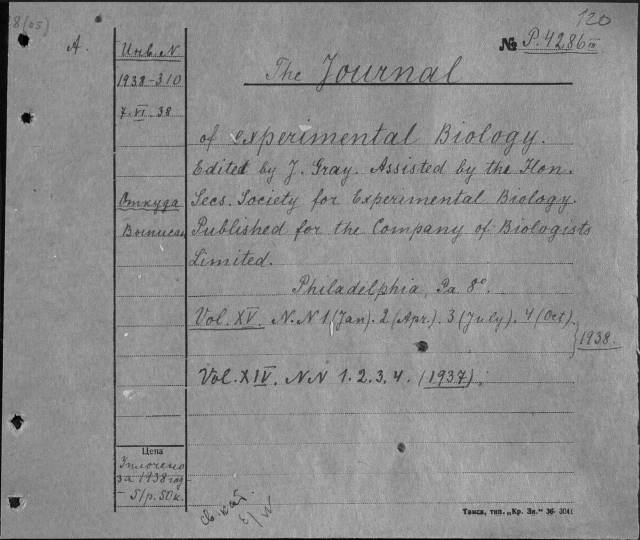 120
№ P.4286 III
A.
Инв. N.
1938-310
7.VI.38
Откуда
The Journal
of experimental Biology.
Edited by J. Gray. Assisted by the Hon.
Secs. Society for Experimental Biology.
Published for the Company of Biologists
Limited.
Philadelphia, Pa 8°.
Vol. XV. N.N 1 (Jan). 2 (Apr.). 3 (July). 4 (Oct).
1938.
Vol. XIV. NN 1. 2. 3. 4. (1937).
Цена
за 1938 год
- 51р. 50к.
Томск, тип. „Кр. Зн." 36- 3041